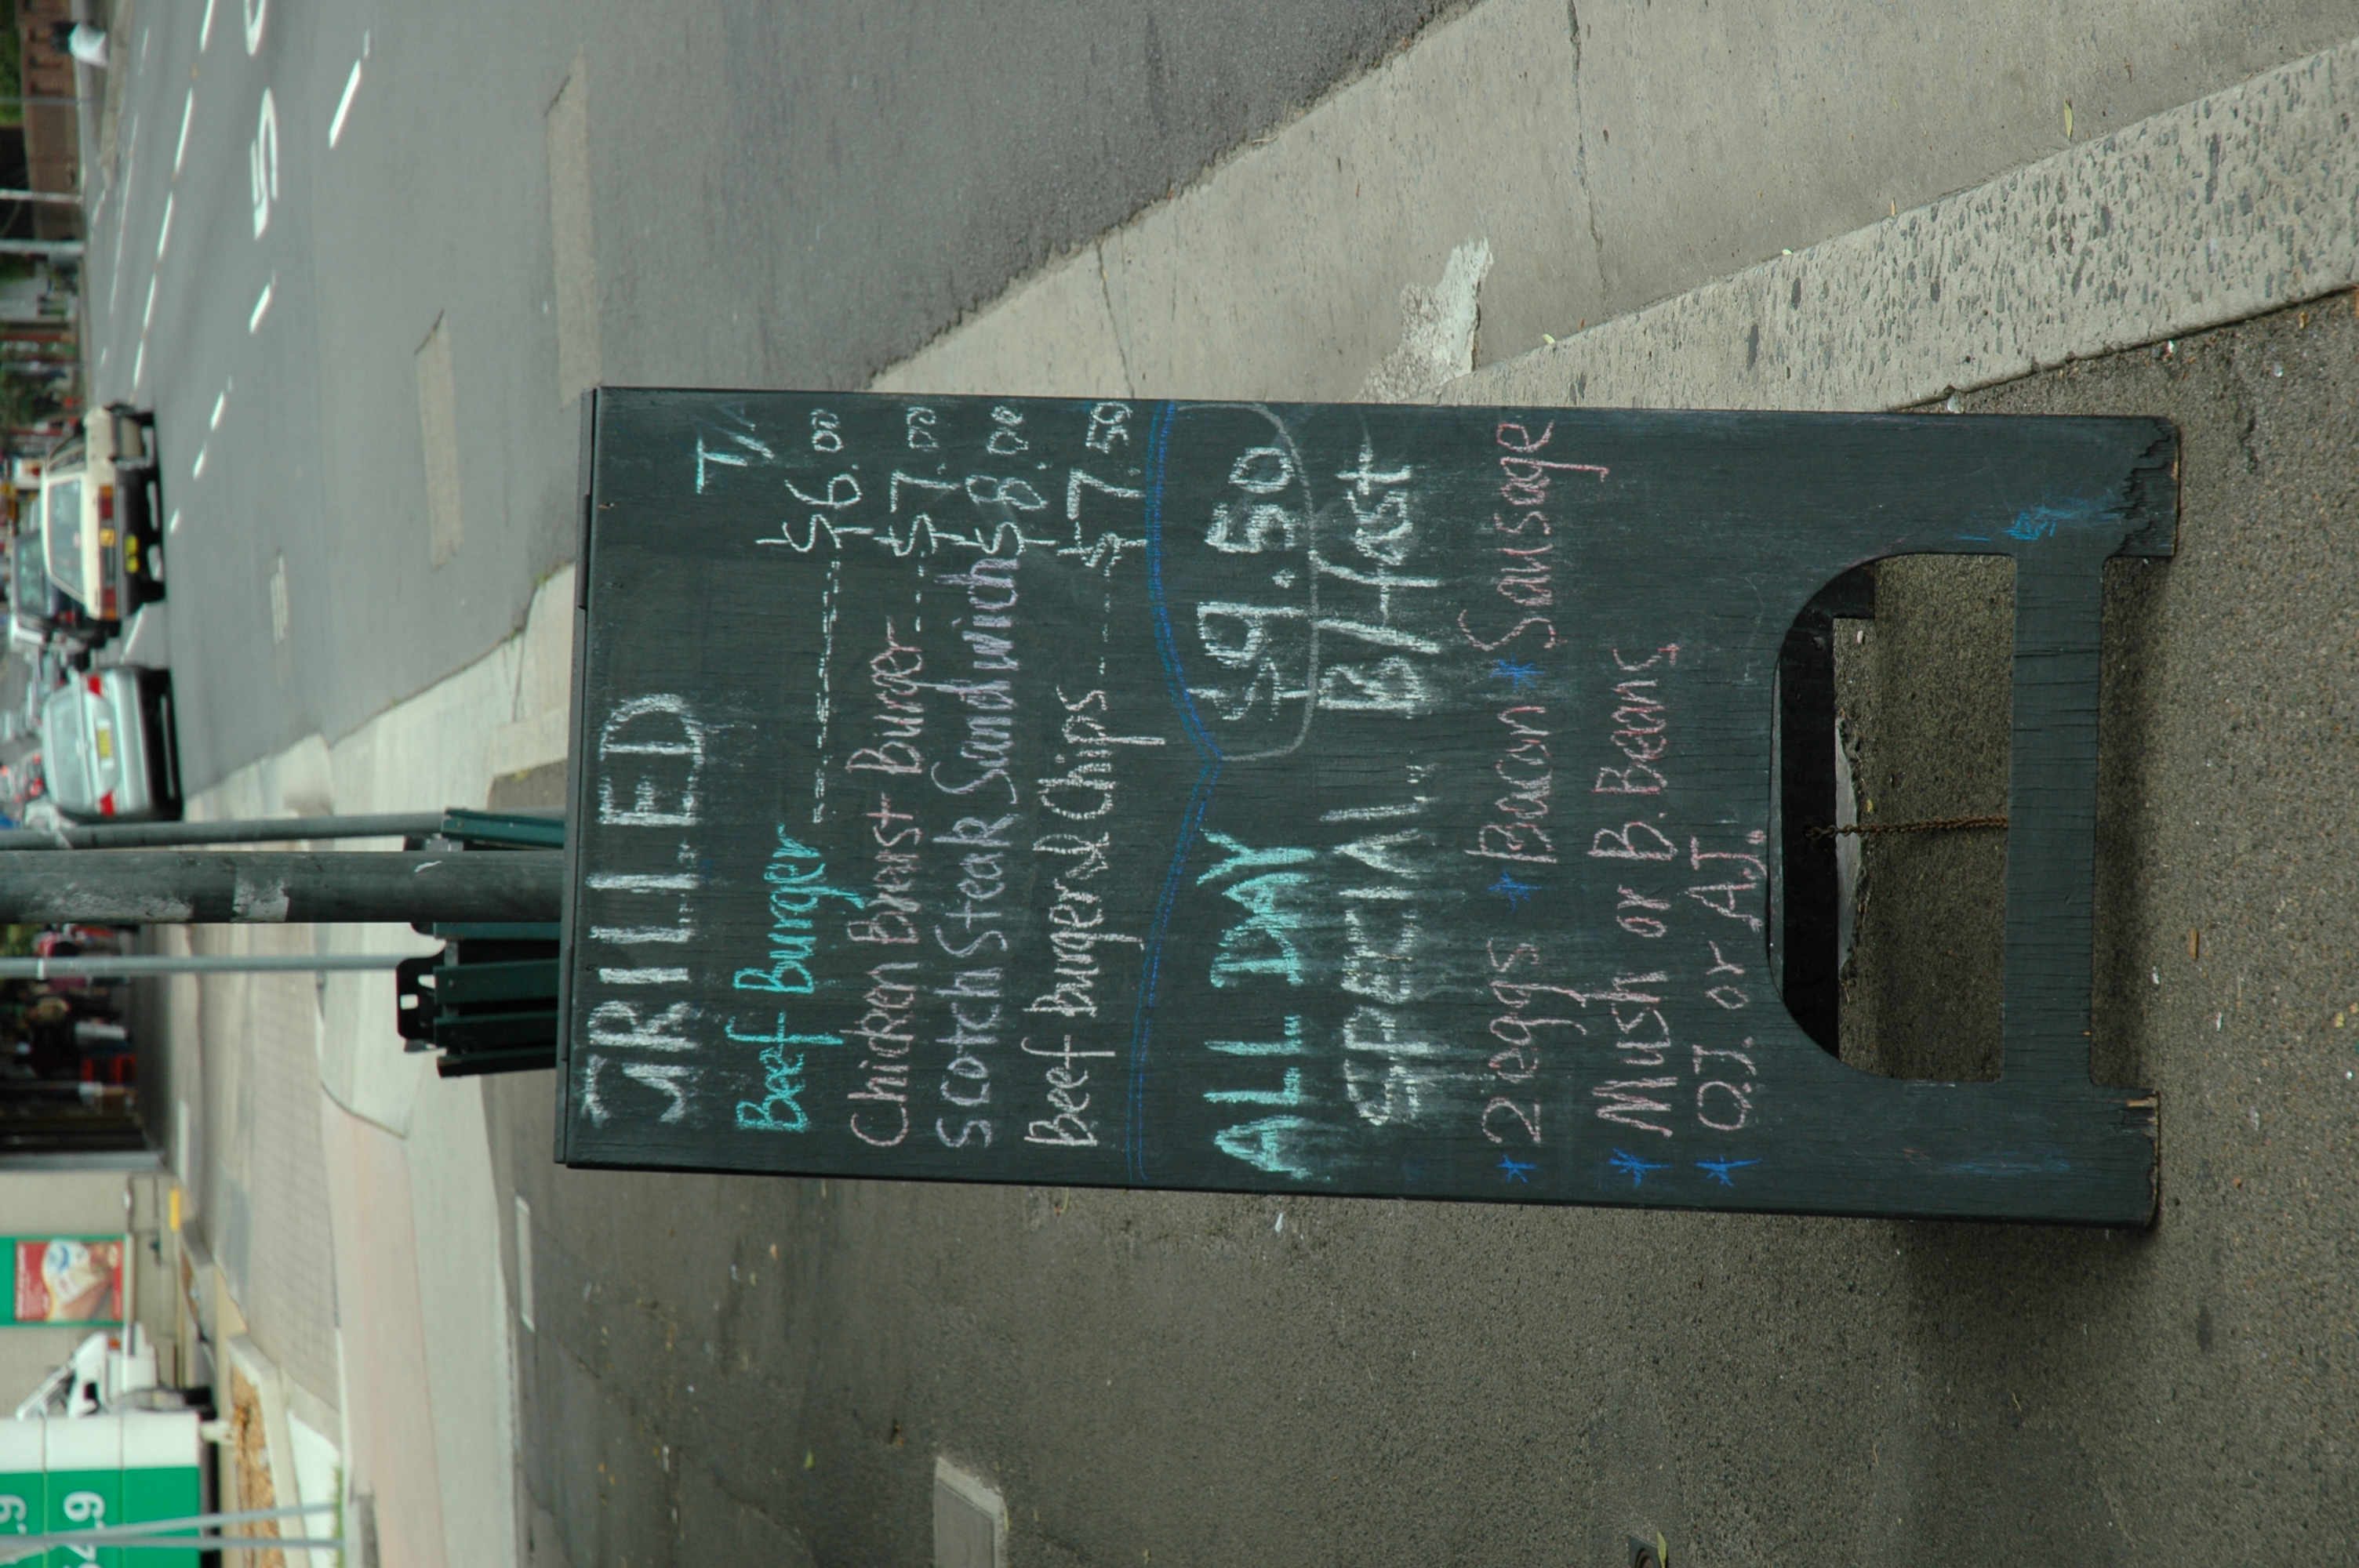 GRILLED
T/A
Beef Burger ------ $6.00
Chicken Breast Burger --- $7.00
Scotch Steak Sandwich $8.00
Beef Burger & Chips --- $7.50
ALL DAY $9.50
SPECIAL.. B/-fast
* 2 eggs * Bacon * Sausage
* Mush or B. Beans
* O.J. or A.J.